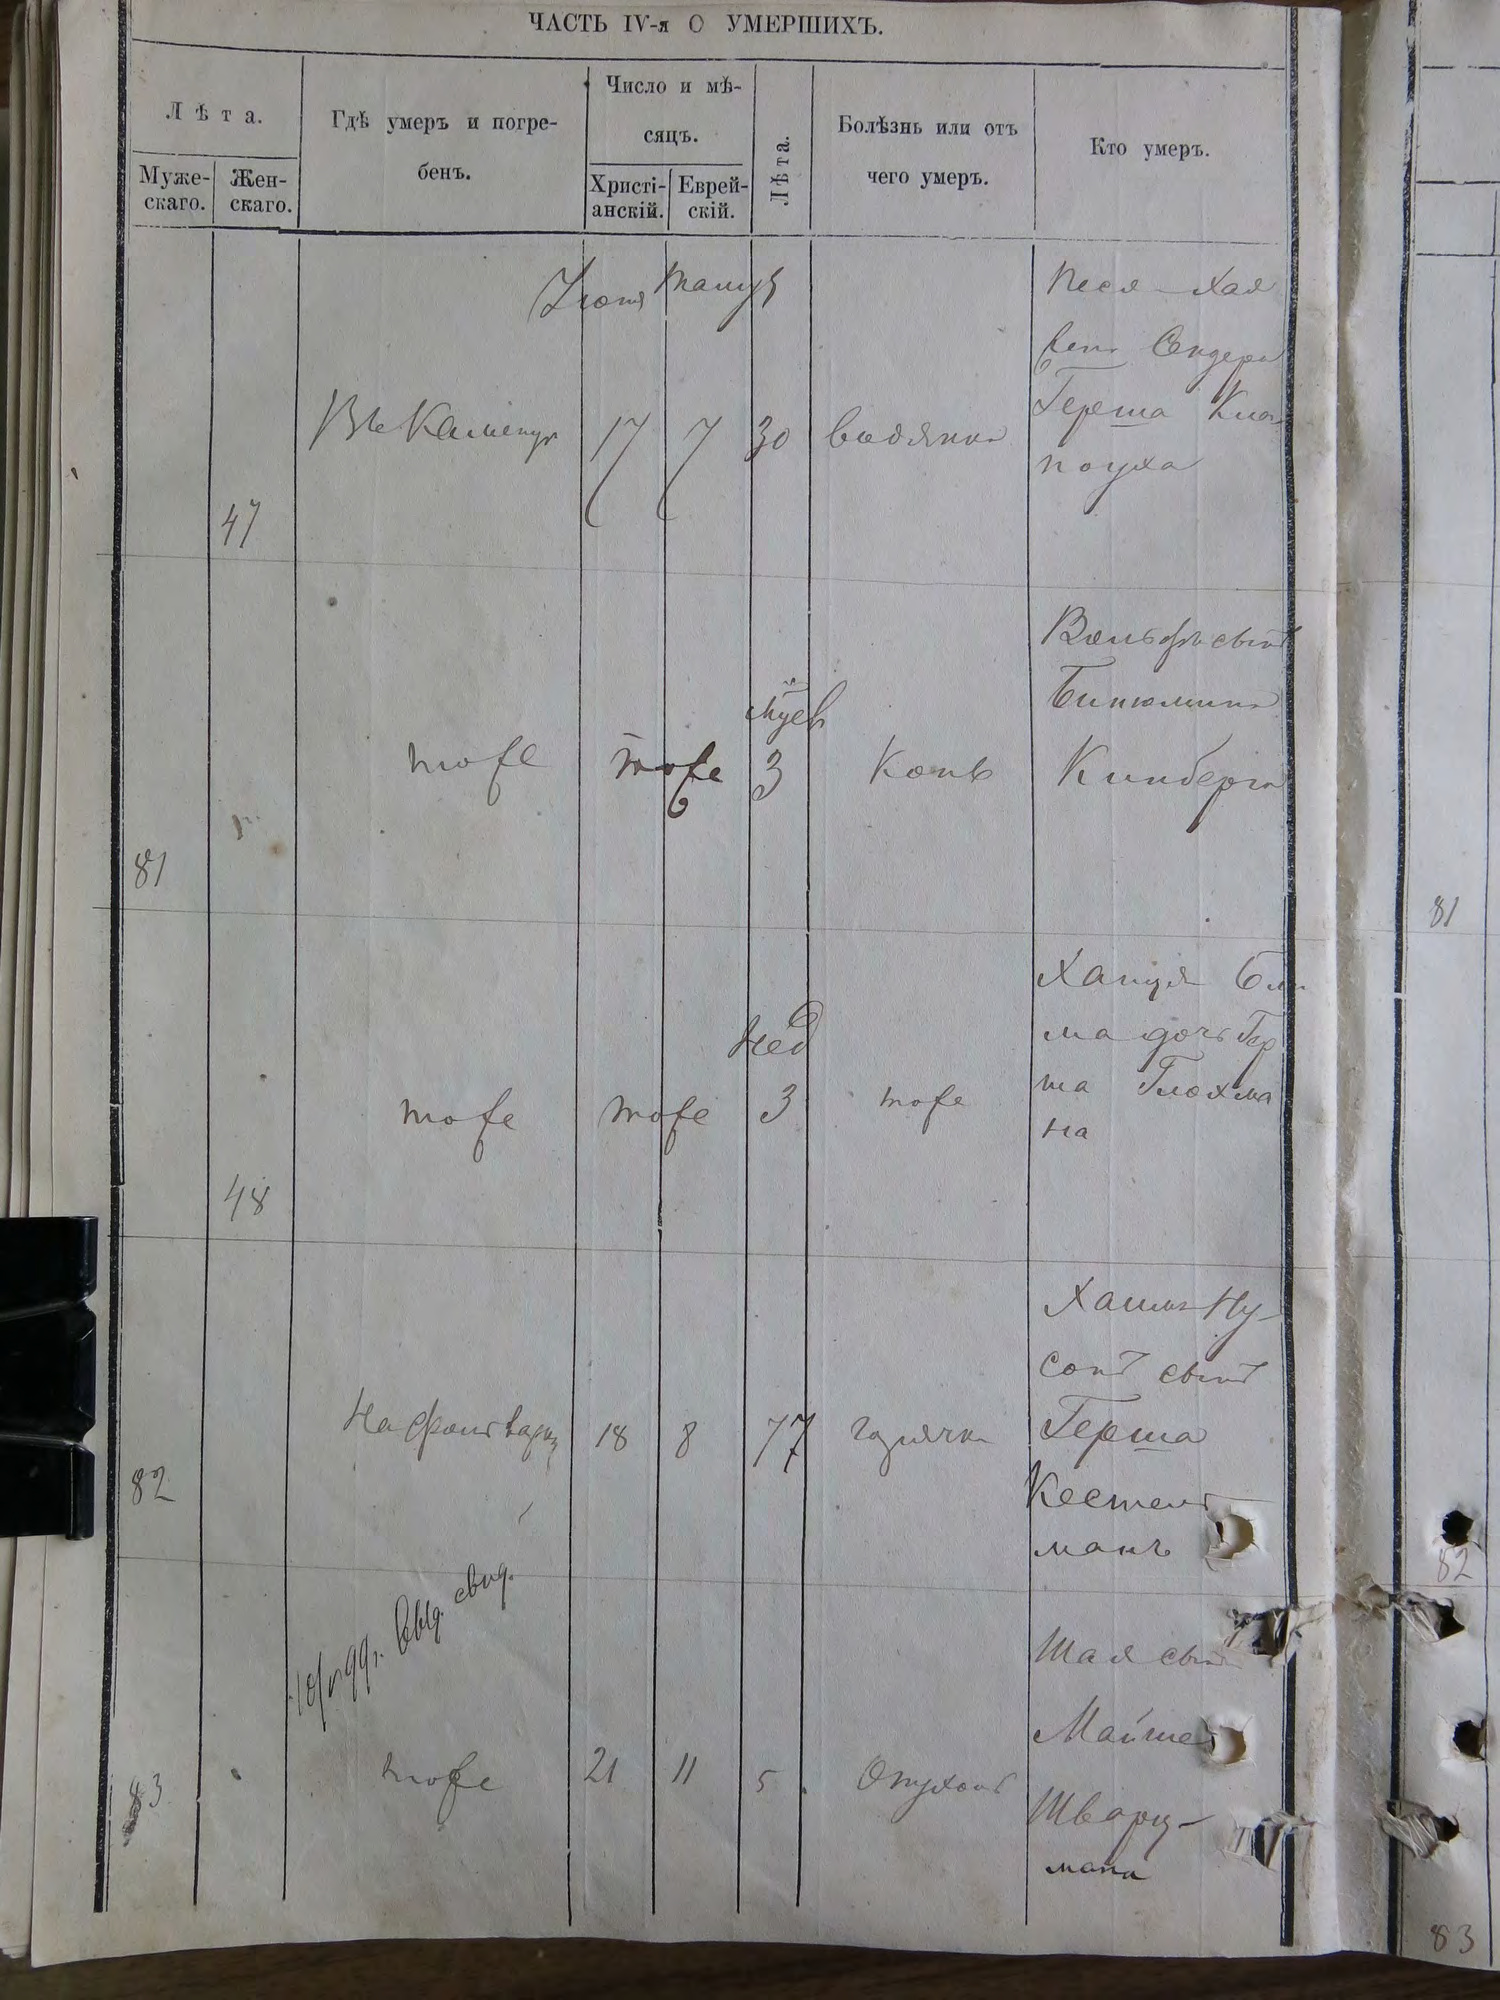 ЧАСТЬ IV-я О УМЕРШИХЪ.
Лѣта.
Муже-
скаго.
Жен-
скаго.
Гдѣ умеръ и погре-
бенъ.
Число и мѣ-
сяцъ.
Христі-
анскій.
Еврей-
скій.
Лѣта.
Болѣзнь или отъ
чего умеръ.
Кто умеръ.
Іюня Тамуз
47
Въ Каменцѣ
17 7 30
водянка
Песя-Хая
Сендера
Герша Кла
поуха
81
тоже
тоже
3
Корь
Вольфъ сынъ
Бинюмина
Кинберга
81
48
тоже
тоже
Нед
3
тоже
Ханця Бли
ма дочь Гер
ша Глохма
на
82
На фольварку
18 8 77
горячка
Хаимъ Ну-
сонъ сынъ
Герша
Кестель
манъ
82
выд. свид.
83
тоже
21 11 5
Опухоль
Шая сынъ
Майше
Шварц-
мана
83